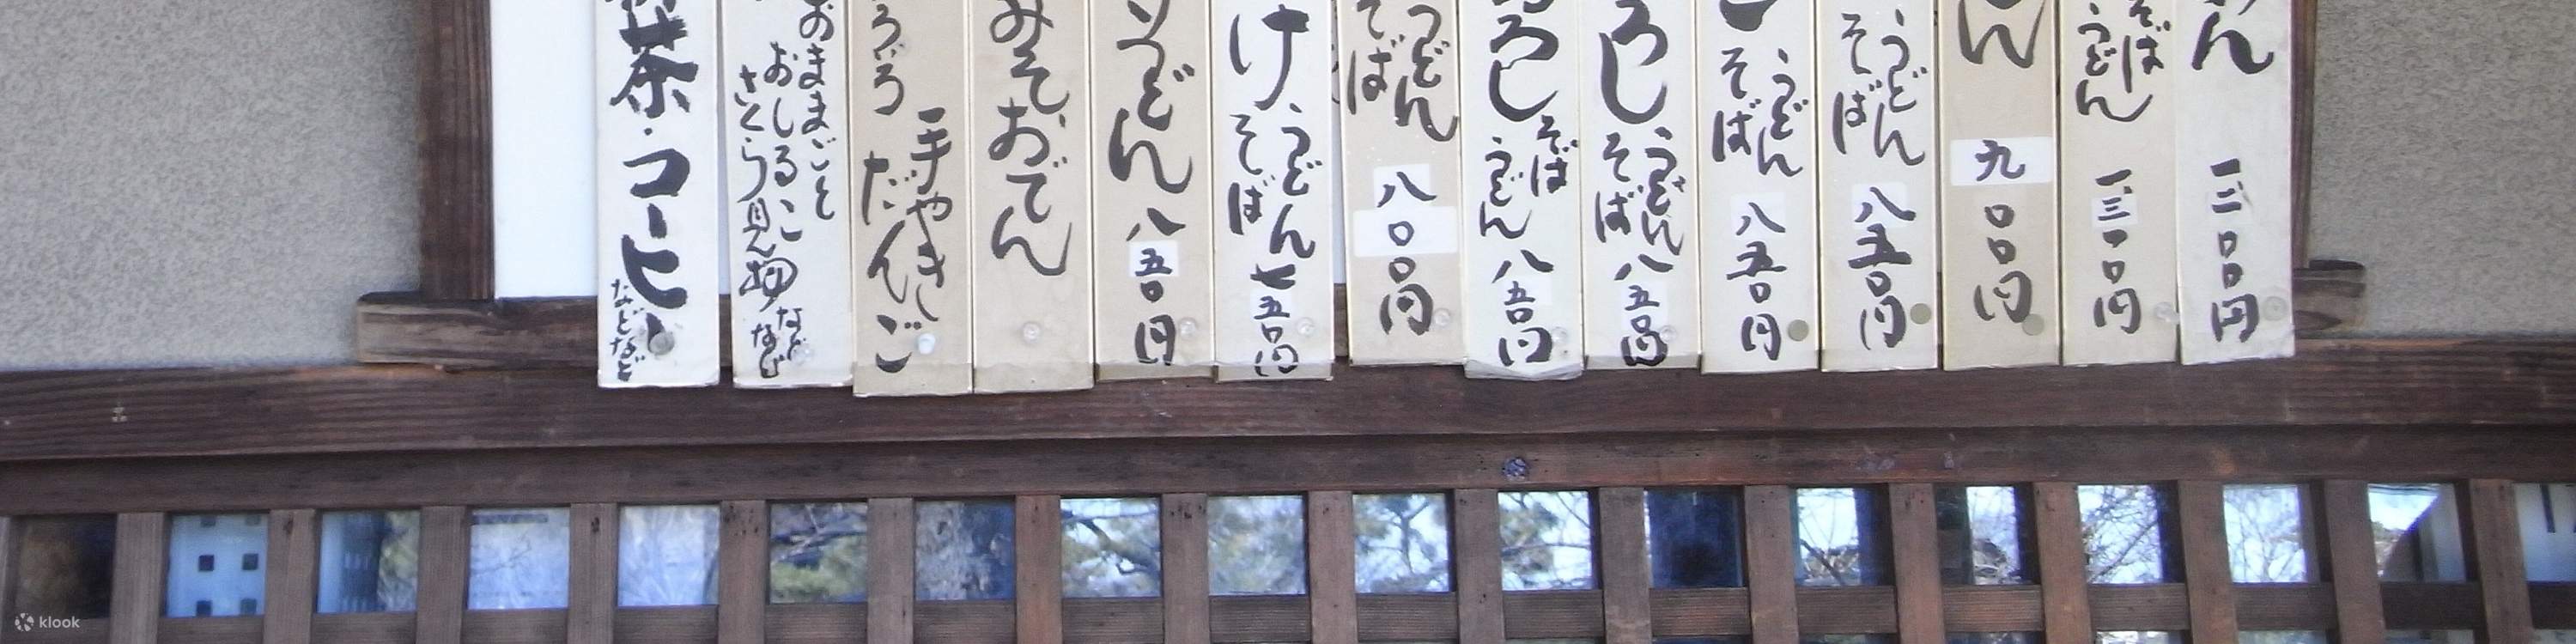 ん 一三〇〇円
そば
うどん 一三〇〇円
ん 九〇〇円
うどん
そば 八五〇円
うどん
そば 八五〇円
ろし うどん
そば 八五〇円
ろし そば
うどん 八五〇円
うどん
そば 八〇〇円
け うどん
そば 七五〇円
うどん 八五〇円
みそおでん
手やき
だんご
おままごと
おしるこ
さくら見物
など
など
茶・コーヒー
などなど
klook